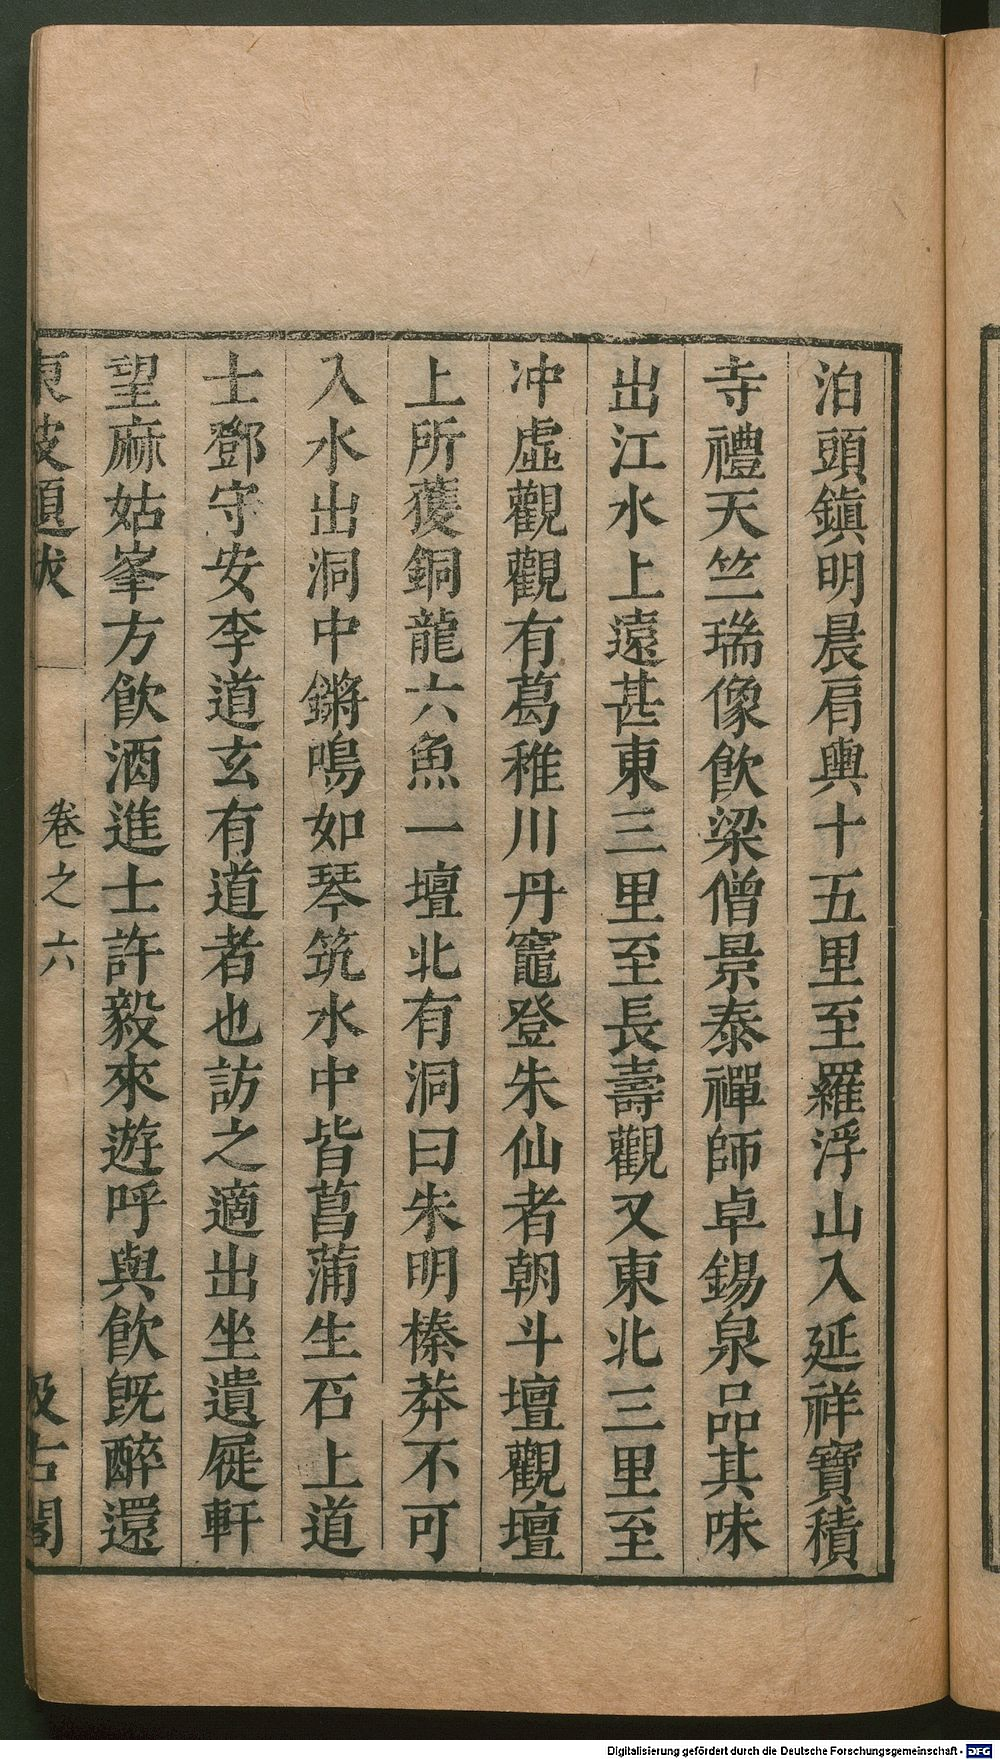 泊頭鎮明晨肩輿十五里至羅浮山入延祥寶積
寺禮天竺瑞像飲梁僧景泰禪師卓錫泉品其味
出江水上遠甚東三里至長壽觀又東北三里至
冲虛觀觀有葛稚川丹竈登朱仙者朝斗壇觀壇
上所獲銅龍六魚一壇北有洞曰朱明榛莽不可
入水出洞中鏘鳴如琴筑水中皆菖蒲生石上道
士鄧守安李道玄有道者也訪之適出坐遺屣軒
望麻姑峯方飲酒進士許毅來遊呼與飲旣醉還
東坡題跋 卷之六 汲古閣
Digitalisierung gefördert durch die Deutsche Forschungsgemeinschaft - DFG